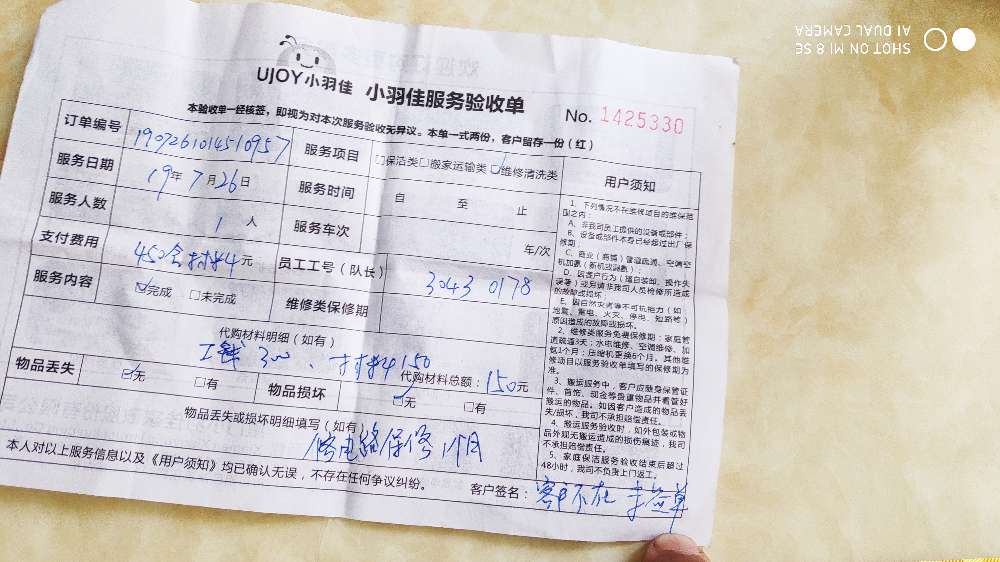 UJOY小羽佳 小羽佳服务验收单
No. 1425330
本验收单一经核签，即视为对本次服务验收无异议。本单一式两份，客户留存一份（红）
订单编号 1907261014510957 服务项目 □保洁类□搬家运输类☑维修清洗类
服务日期 19年7月26日 服务时间 自 至 止
服务人数 1人 服务车次 年/次
支付费用 450含材料元 员工工号（队长） 3043 0178
服务内容 ☑完成 □未完成 维修类保修期
代购材料明细（如有）
工钱300、材料150
代购材料总额：150元
物品丢失 ☑无 □有 物品损坏 ☑无 □有
物品丢失或损坏明细填写（如有）
修电路保修1个月
本人对以上服务信息以及《用户须知》均已确认无误，不存在任何争议纠纷。
客户签名：客户不在 未签单
用户须知
1、下列情况不在维修项目的维保范
围之内：
A、非我司员工提供的设备或部件；
B、设备或部件本身已经超过出厂保
修期；
C、商业（商铺）管道疏通、空调空
机加氟（新机或漏氟）；
D、因客户行为（擅自装卸、操作失
误等）或另请非我司人员检修所造成
的故障或损坏
E、因自然灾害等不可抗拒力（如
地震、雷电、火灾、停电、短路等）
原因造成的故障或损坏。
2、维修类服务免费保修期：家庭管
道疏通3天；水电维修、空调维修、加
氟1个月；压缩机更换6个月，其他维
修项目以服务验收单填写的保修期为
准。
3、搬运服务中，客户应随身保管证
件、首饰、现金等贵重物品并看管好
搬运的物品。如因客户造成的物品丢
失/损坏，我司不承担赔偿责任。
4、搬运服务验收时，如外包装或物
品外观无搬运造成的损伤痕迹，我司
不承担赔偿责任。
5、家庭保洁服务验收结束后超过
48小时，我司不负责上门返工。
SHOT ON MI 8 SE
AI DUAL CAMERA